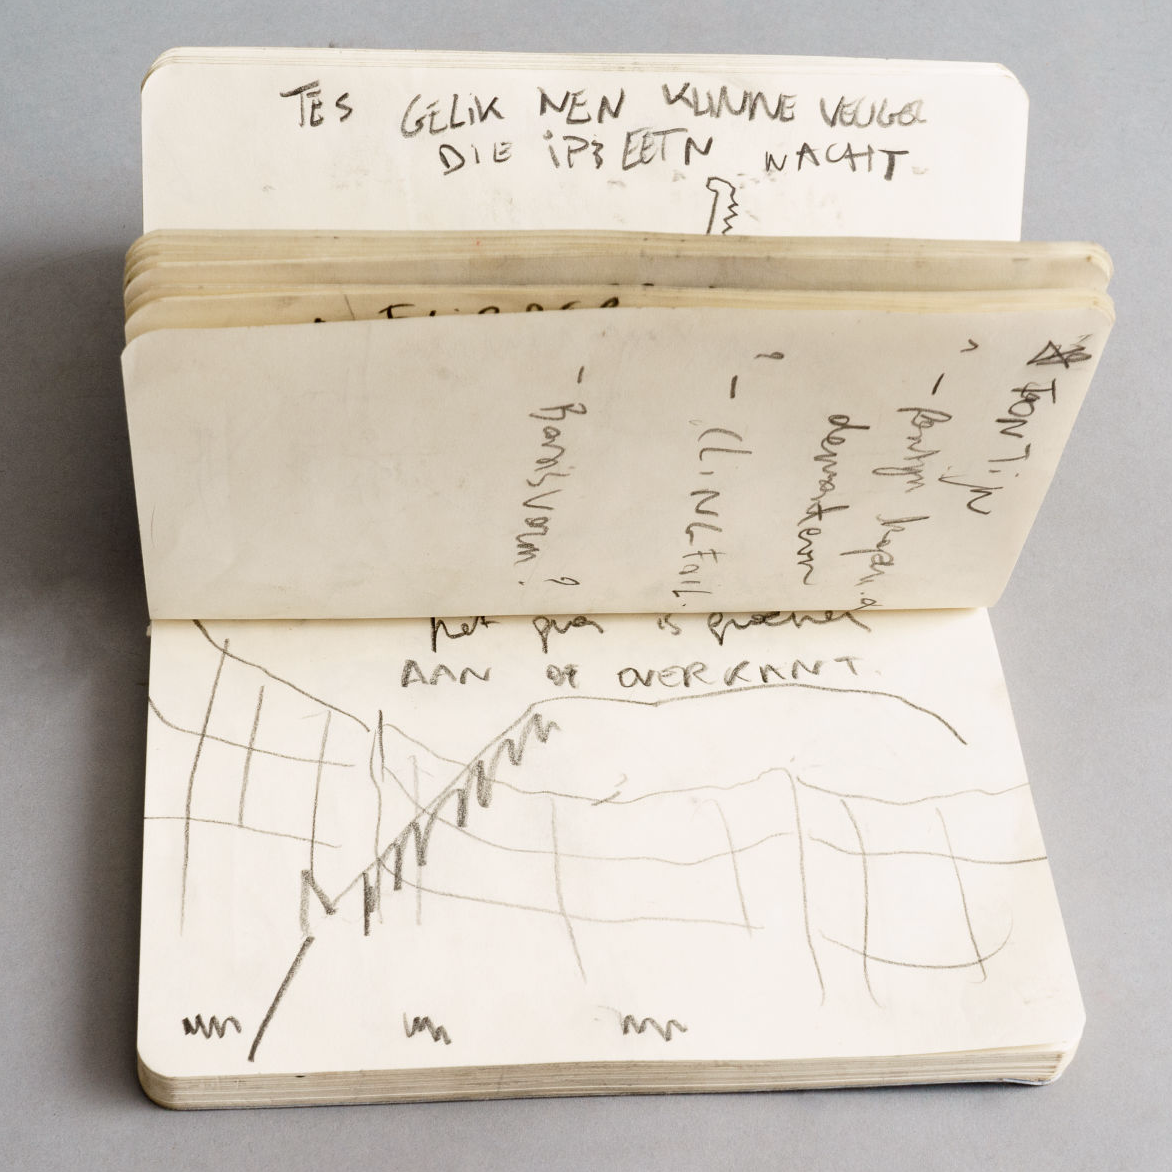 TES GELIK NEN KLINNE VEUGEL
DIE IPSEETN WACHT.
TONTIJN
-
demonteren
- CLINGFOIL.
- Basisvorm?
het gras is groener
AAN DE OVERKANT.